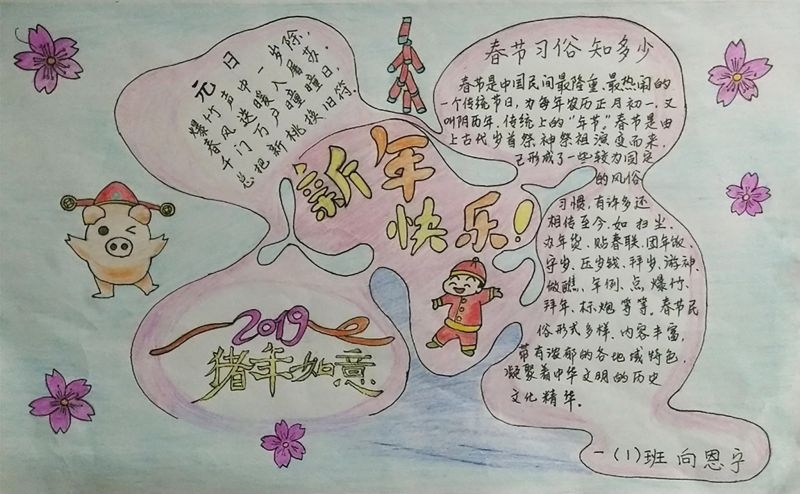 元日
爆竹声中一岁除,
春风送暖入屠苏。
千门万户曈曈日,
总把新桃换旧符.
新年
快乐!
2019
猪年如意
春节习俗知多少
春节是中国民间最隆重、最热闹的
一个传统节日,为每年农历正月初一,又
叫阴历年,传统上的“年节”。春节是由
上古代岁首祭神祭祖演变而来,
已形成了一些较为固定
的风俗
习惯,有许多还
相传至今,如扫尘、
办年货、贴春联、团年饭、
守岁、压岁钱、拜岁、游神、
做醮、年例、点爆竹、
拜年、标炮等等。春节民
俗形式多样、内容丰富,
带有浓郁的各地域特色,
凝聚着中华文明的历史
文化精华。
一(1)班 向恩宇